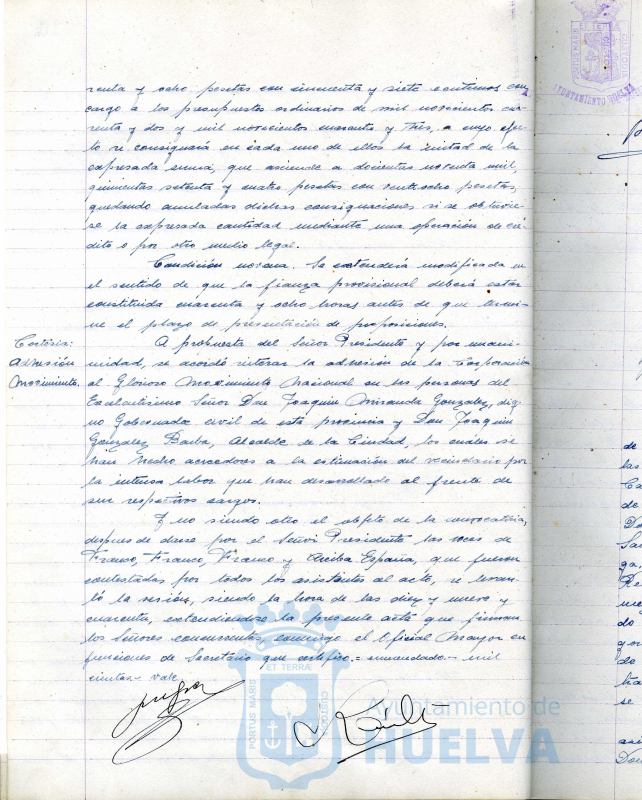 renta y ocho pesetas con cincuenta y siete centimos con
cargo a los presupuestos ordinarios de mil novecientos cua-
renta y dos y mil novecientos cuarenta y tres, a cuyo efec-
to se consignará en cada uno de ellos la mitad de la
expresada suma, que asciende a doscientas noventa mil,
quinientas setenta y cuatro pesetas con veintiocho pesetas,
quedando anuladas dichas consignaciones si se obtuvie-
se la expresada cantidad mediante una operación de cré-
dito o por otro medio legal.
Condición novena. Se entenderá modificada en
el sentido de que la fianza provisional deberá estar
constituida cuarenta y ocho horas antes de que termi-
ne el plazo de presentación de proposiciones.
Cortesia:
Adhesión
Movimiento.
A propuesta del Señor Presidente y por unani-
midad, se acordó reiterar la adhesión de la Corporación
al Glorioso Movimiento Nacional en las personas del
Excelentisimo Señor Don Joaquin Miranda Gonzalez, dig-
no Gobernador civil de esta provincia y Don Joaquin
Gonzalez Barba, Alcalde de la Ciudad, los cuales se
han hecho acreedores a la estimación del vecindario por
la intensa labor que han desarrollado al frente de
sus respectivos cargos.
Y no siendo otro el objeto de la convocatoria,
despues de darse por el Señor Presidente las voces de
Franco, Franco, Franco y Arriba España, que fueron
contestadas por todos los asistentes al acto, se levan-
tó la sesión, siendo la hora de las diez y nueve y
cuarenta, extendiendose la presente acta que firman
los Señores concurrentes, conmigo el Oficial Mayor en
funciones de Secretario que certifico.= enmendado.- mil
vale
PORTUS MARIS ET TERRAE CUSTODIA
Ayuntamiento de
HUELVA
PORTUS MARIS ET TERRAE CUSTODIA
AYUNTAMIENTO HUELVA
de
las
Ca
de
Do
ga,
Re
do
gor
do
se